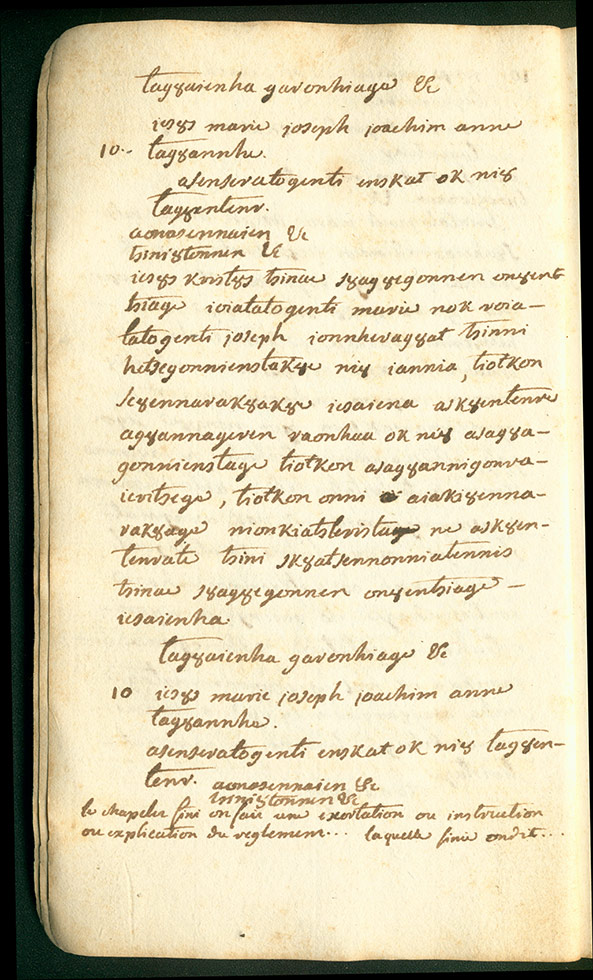 tagȣaienha garonhiage &c
iesȣs marie joseph joachim anne
10.- tagȣannhe.
asenseratogenti enskat ok niȣ
tagȣentenr.
aonasennaien &c
tsiniȣtonnen &c
iesȣs kristȣs tsinae sȣagȣegonnen onȣent
tsiage ioiatatogenti marie nok roia-
tatogenti joseph ionnheragȣat tsinni
hetsegonnienstakȣe niȣ iannia, tiotkon
seȣennarakȣakȣe iesaiena askȣentenre
agȣannageren raonhaa ok niȣ asagȣa-
gonnienstage tiotkon asagȣannigonra-
ieritsege, tiotkon onni aiakiȣenna-
rakȣage nionkiatsteristage ne askȣen-
tenrate tsini skȣatsennonniatennis
tsinae sȣagȣegonnen onȣentsiage-
iesaienha
tagȣaienha garonhiage &c
10 iesȣs marie joseph joachim anne
tagȣannhe.
asenseratogenti enskat ok niȣ tagȣen-
tenr. aonasennaien &c
tsiniȣtonnen &c
le chapelet fini on fait une exortation ou instruction
ou explication du reglement... laquelle finie on dit...